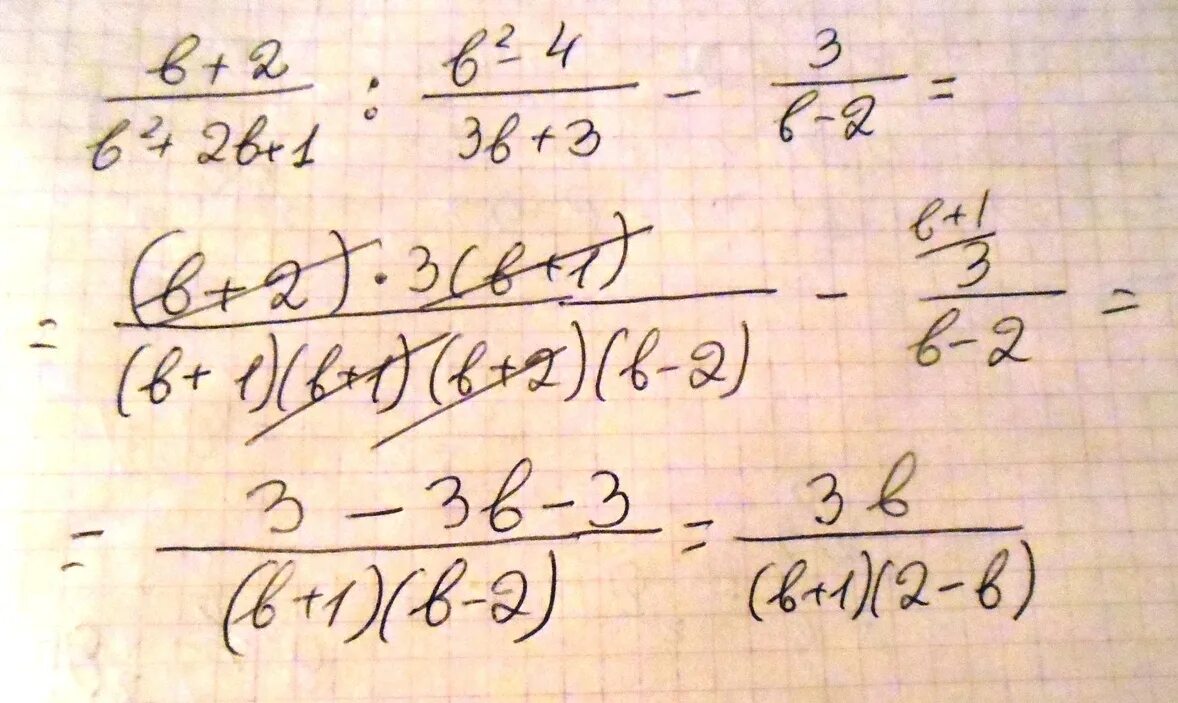 (в + 2)/(в² + 2в + 1) : (в² - 4)/(3в + 3) - 3/(в - 2) =
= ((в + 2) · 3(в + 1))/((в + 1)(в + 1)(в + 2)(в - 2)) - в+1/ 3/(в - 2) =
= (3 - 3в - 3)/((в + 1)(в - 2)) = 3в/((в + 1)(2 - в))